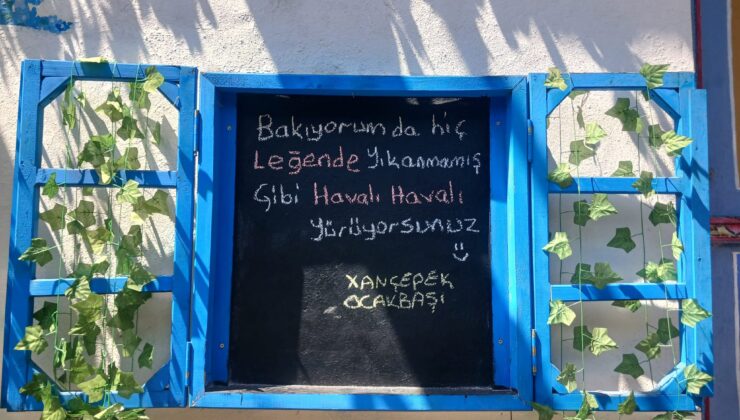 Bakıyorum da hiç
Leğende Yıkanmamış
Gibi Havalı Havalı
Yürüyorsunuz
XANÇEPEK
OCAKBAŞI